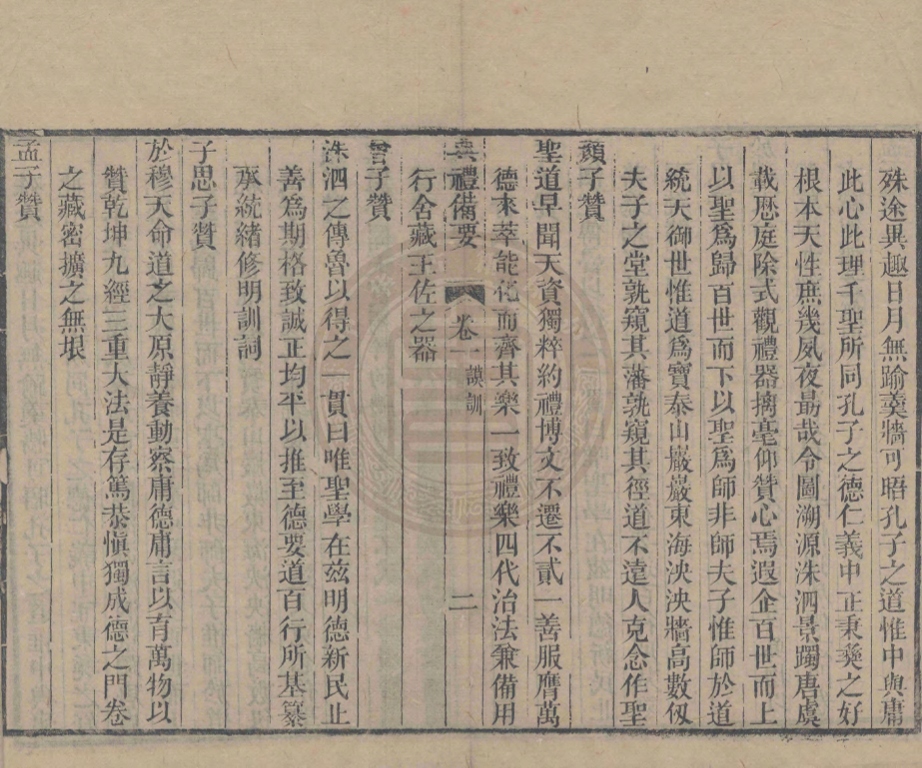 殊途異趣日月無踰羹牆可晤孔子之道惟中與庸
此心此理千聖所同孔子之德仁義中正秉彝之好
根本天性庶幾夙夜勗哉令圖溯源洙泗景躅唐虞
載歷庭除式觀禮器摛毫仰贊心焉遐企百世而上
以聖爲歸百世而下以聖爲師非師夫子惟師於道
統天御世惟道爲寶泰山巖巖東海泱泱牆高數仞
夫子之堂孰窺其藩孰窺其徑道不遠人克念作聖
顏子贊
聖道早聞天資獨粹約禮博文不遷不貳一善服膺萬
德來萃能化而齊其樂一致禮樂四代治法兼備用
行舍藏王佐之器
典禮備要 卷一 謨訓 二
曾子贊
洙泗之傳魯以得之一貫曰唯聖學在茲明德新民止
善爲期格致誠正均平以推至德要道百行所基纂
承統緒修明訓詞
子思子贊
於穆天命道之大原靜養動察庸德庸言以育萬物以
贊乾坤九經三重大法是存篤恭愼獨成德之門卷
之藏密擴之無垠
孟子贊